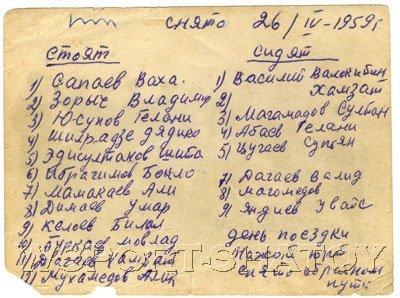 снято 26/IV-1959г
стоят
1) Сапаев Ваха.
2) Зорыч Владимир
3) Юсупов Гелани
4) Шипрадзе дядико
5) Эдисултанов Шита
6) Ибрагимов
7) Мамакаев Али
8) Димаев Умар
9) Келоев Билал
10) Буркаев Мовлад
11) Дагаев Хамзат
12) Мухамедов
сидят
1) Василий
2) Хамзат
3) Магамадов Султан
4) Абаев Гелани
5) Цугаев Супян
7) Дагаев Валид
8) Магомедов
9) Яндиев Увайс
день поездки
снято обратном
пути